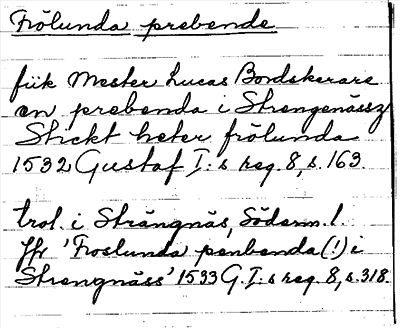 Frölunda prebende
fik Mester Lucas Bordskerare
en prebenda i Strengenässz
Stickt heter frölunda
1532 Gustaf I:s reg. 8, s. 163.
trol. i Strängnäs, Söderm. l.
Jfr 'Froslunda penbenda (!) i
Strengnäss' 1533 G. I:s reg. 8, s. 318.